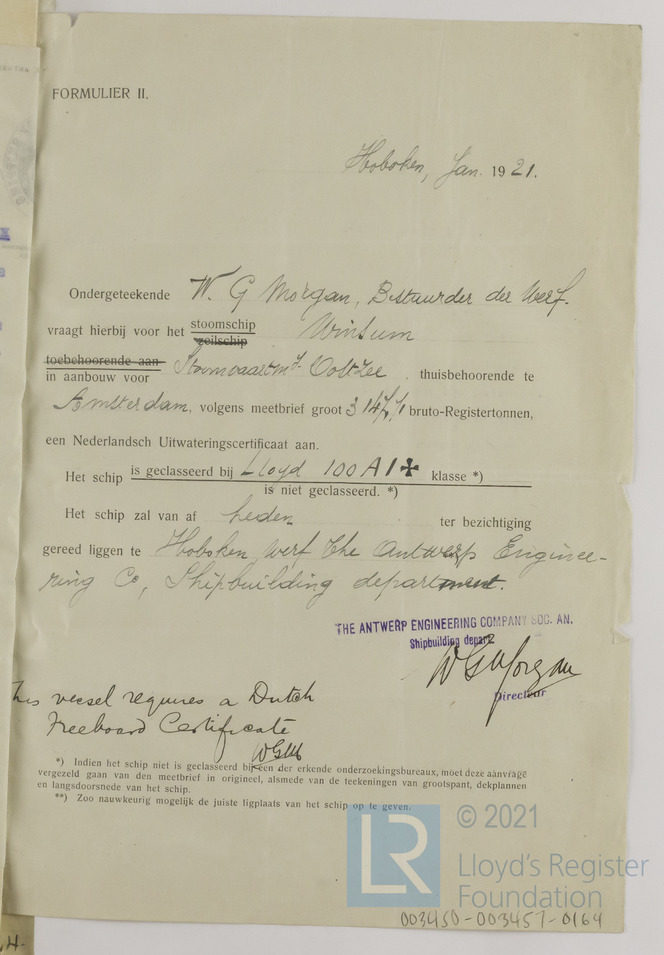 FORMULIER II.
Hoboken, Jan. 1921.
Ondergeteekende W. G Morgan, Bestuurder der Werf.
vraagt hierbij voor het stoomschip Winsum
zeilschip
toebehoorende aan
in aanbouw voor Stoomvaartmy. Oostzee, thuisbehoorende te
Amsterdam, volgens meetbrief groot bruto-Registertonnen,
een Nederlandsch Uitwateringscertificaat aan.
Het schip is geclasseerd bij Lloyd 100 A1 ✠ klasse *)
is niet geclasseerd. *)
Het schip zal van af heden ter bezichtiging
gereed liggen te Hoboken werf The Antwerp Enginee-
ring Co, Shipbuilding department.
THE ANTWERP ENGINEERING COMPANY SOC. AN.
Shipbuilding depart.
WGMorgan
Directeur
This vessel requires a Dutch
Freeboard Certificate
WGM
*) Indien het schip niet is geclasseerd bij een der erkende onderzoekingsbureaux, moet deze aanvrage
vergezeld gaan van den meetbrief in origineel, alsmede van de teekeningen van grootspant, dekplannen
en langsdoorsnede van het schip.
**) Zoo nauwkeurig mogelijk de juiste ligplaats van het schip op te geven.
LR
© 2021
Lloyd's Register
Foundation
003450-003457-0164